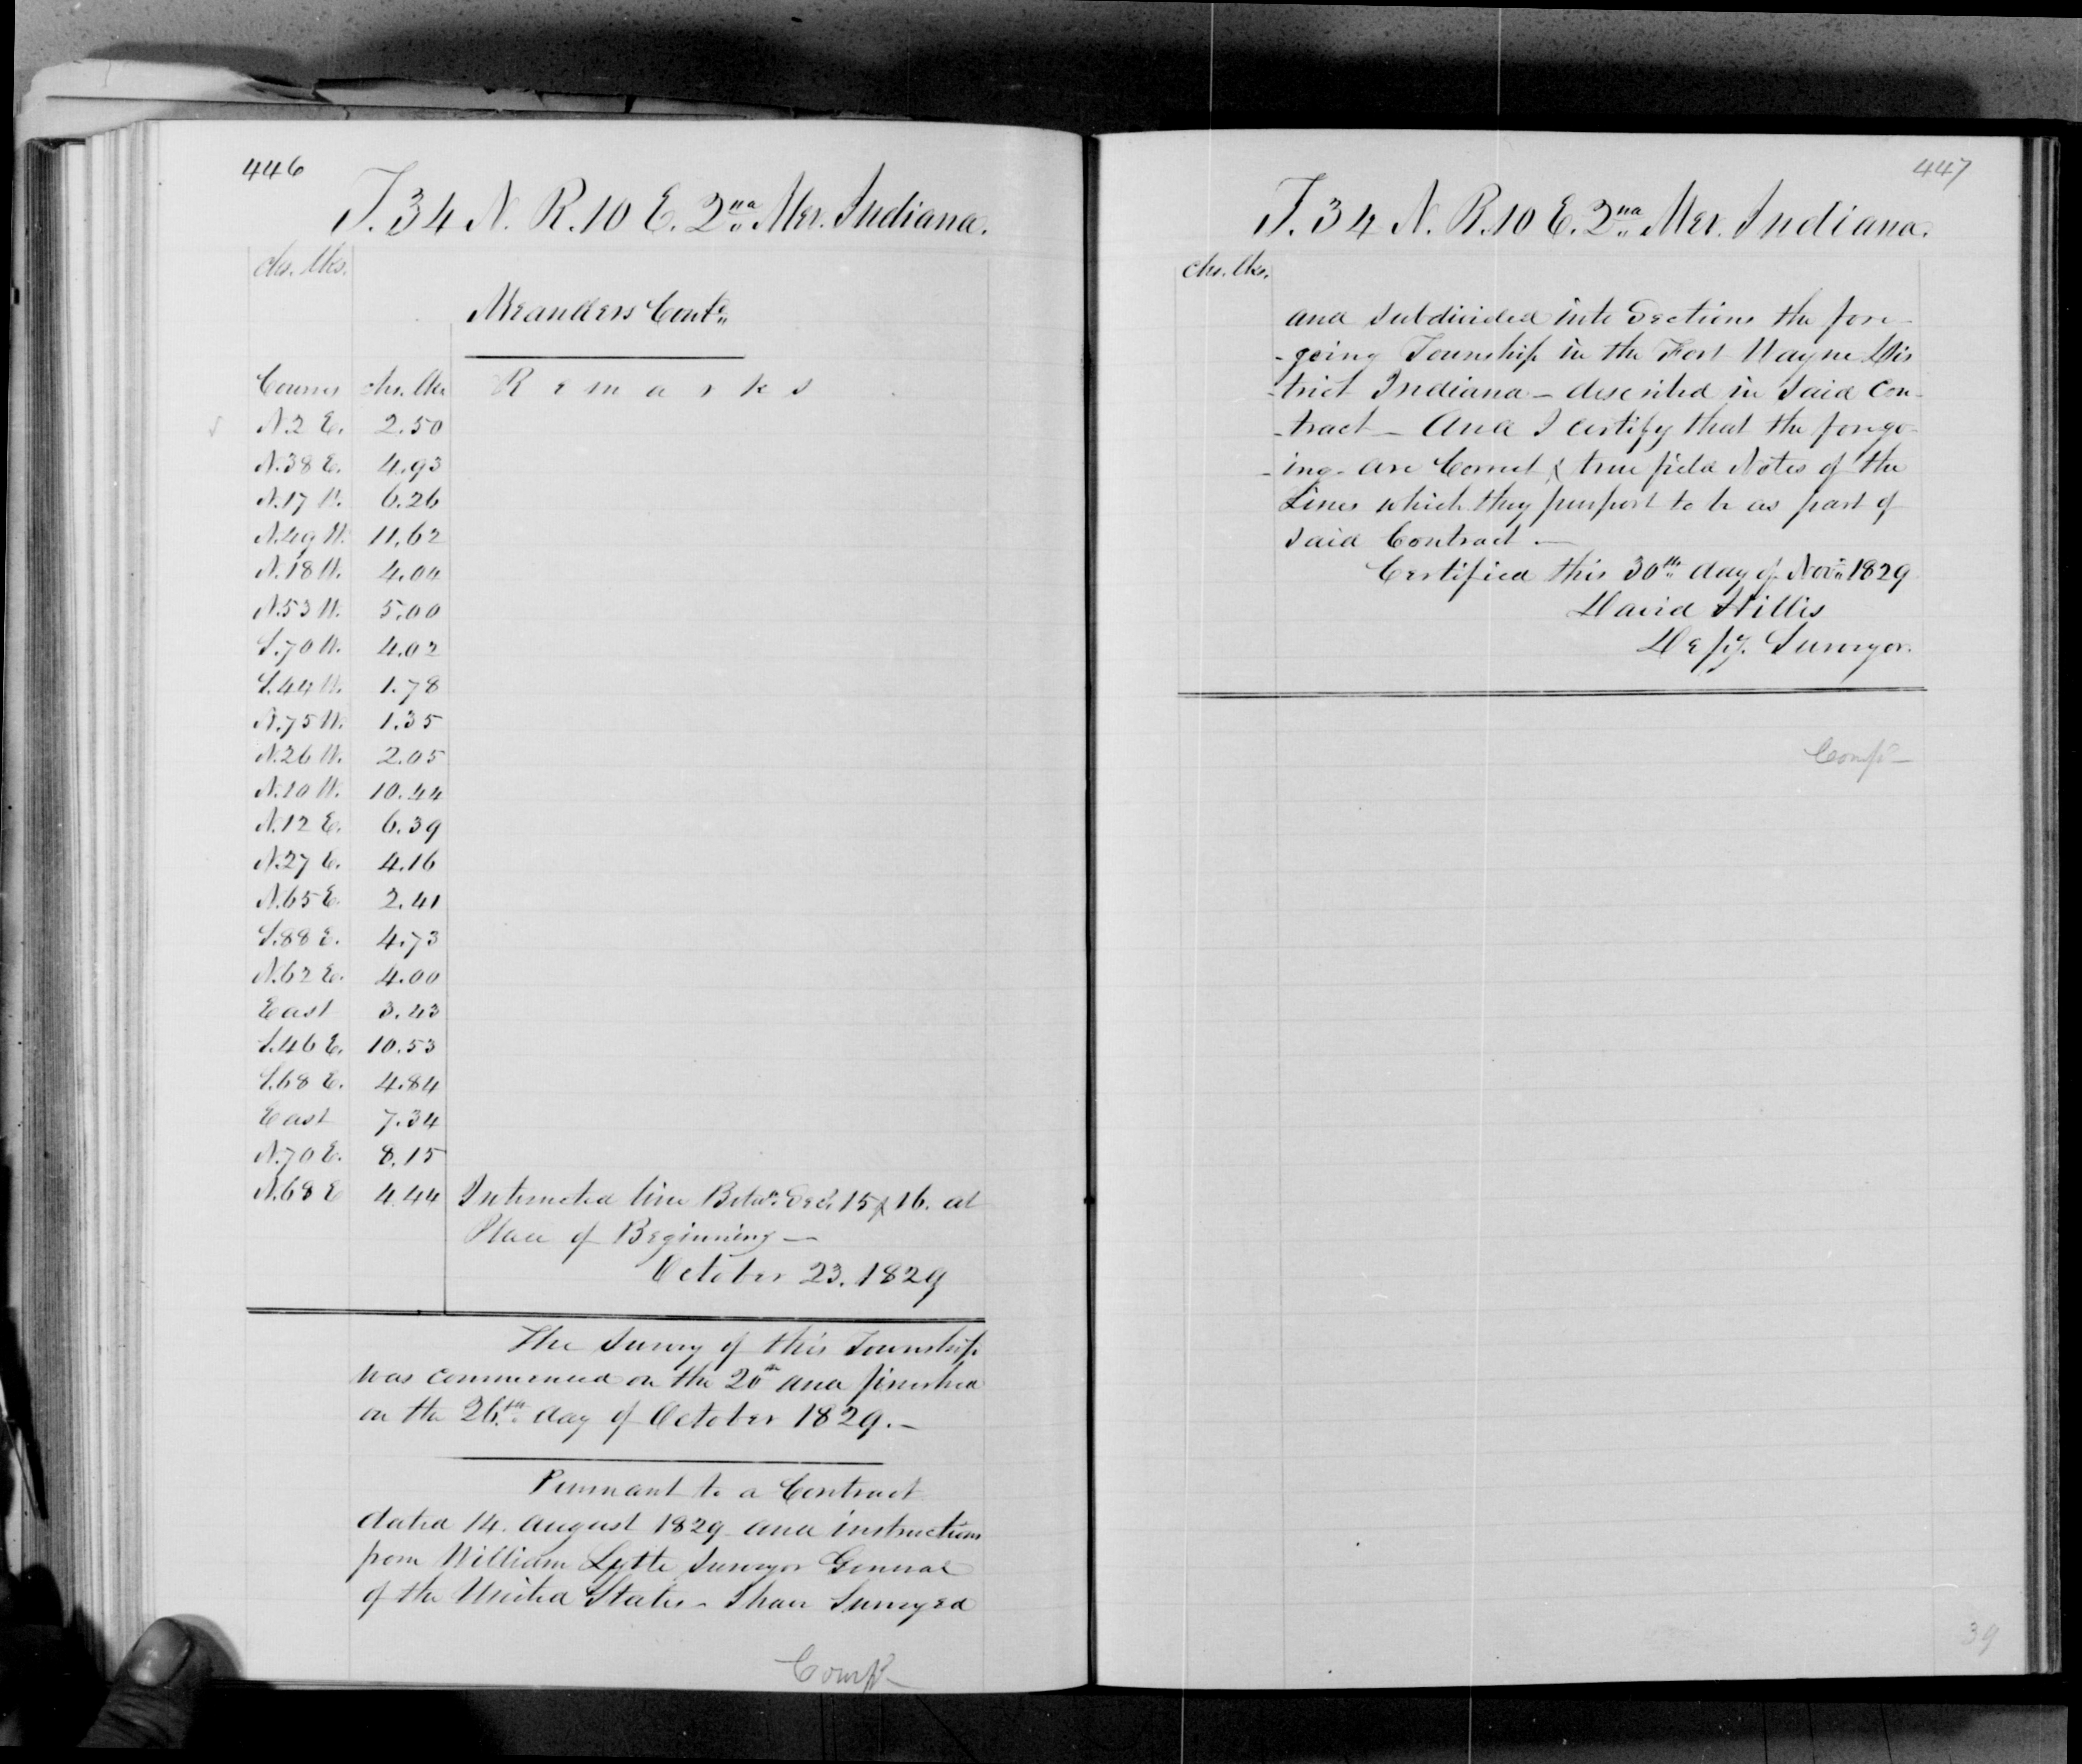 446
T. 34 N. R. 10 E. 2nd Mer. Indiana.
chs. lks.
Meanders Contd
Courses chs. lks Remarks
N. 2 E. 2.50
N. 38 E. 4.93
N. 17 W. 6.26
N. 49 W. 11.62
N. 18 W. 4.04
N. 53 W. 5.00
S. 70 W. 4.02
S. 44 W. 1.78
N. 75 W. 1.35
N. 26 W. 2.05
N. 10 W. 10.44
N. 12 E. 6.39
N. 27 E. 4.16
N. 65 E. 2.41
S. 88 E. 4.73
N. 62 E. 4.00
East 3.43
S. 46 E. 10.53
S. 68 E. 4.84
East 7.34
N. 70 E. 8.15
N. 68 E 4.44 Intersected line Betwn Secs. 15 & 16. at
Place of Beginning —
October 23. 1829
The Survey of this Township
was commenced on the 20th and finished
on the 26th day of October 1829. —
Pursuant to a Contract
dated 14. August 1829 and instructions
from William Lytle Surveyor General
of the United States - I have Surveyed
Compd
447
T. 34 N. R. 10 E. 2nd Mer. Indiana.
chs. lks.
and subdivided into Sections the fore-
-going Township in the Fort Wayne Dis
-trict Indiana — described in said Con-
-tract — And I certify that the forego-
-ing - are Correct & true field Notes of the
Lines which they purport to be as part of
said Contract. —
Certified this 30th day of Novr. 1829
David Hillis
Depy. Surveyor.
Compd
39